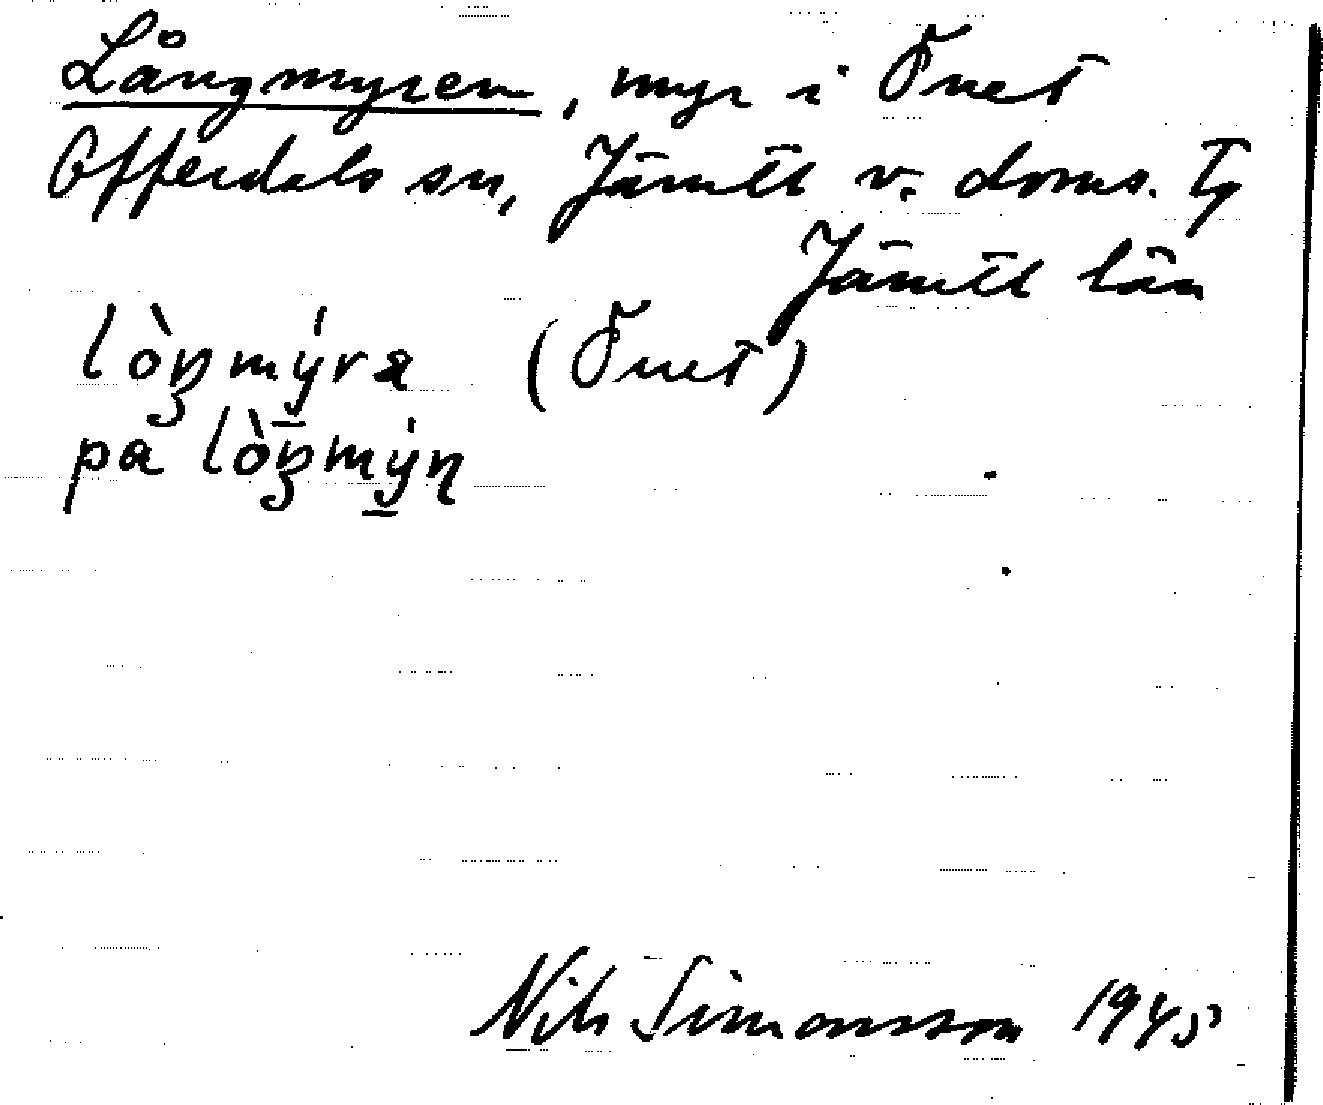 Långmyren, myr i Önet
Offerdals sn, Jämtl v. doms. Tg
Jämtl län
lòŋmýra (Önet)
pa lòŋmýn
Nils Simonsson 1945